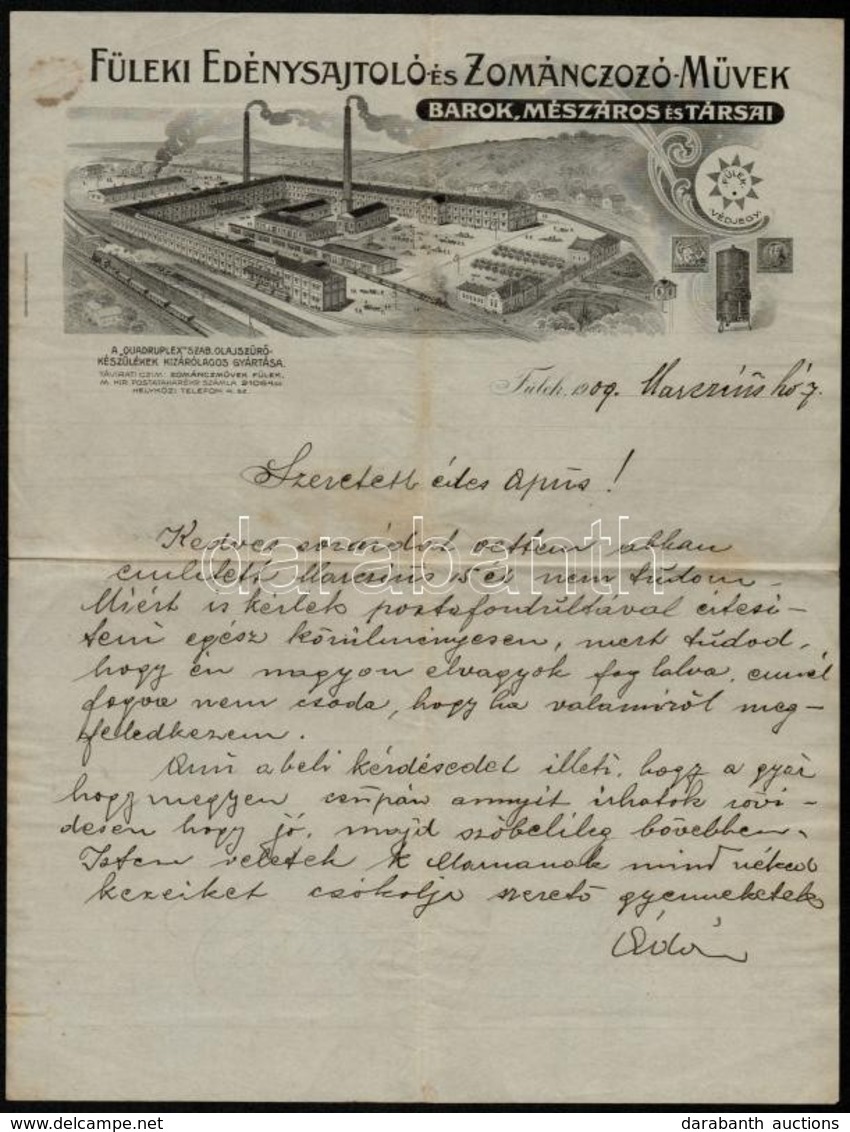 FÜLEKI EDÉNYSAJTOLÓ-ÉS ZOMÁNCZOZÓ-MŰVEK
BAROK, MÉSZÁROS ÉS TÁRSAI
FÜLEK
VÉDJEGY.
A „QUADRUPLEX" SZAB. OLAJSZŰRŐ-
KÉSZÜLÉKEK KIZÁRÓLAGOS GYÁRTÁSA.
TÁVIRATI CZIM: ZOMÁNCZMŰVEK FÜLEK.
M. KIR. POSTATAKARÉKP. SZÁMLA
HELYKÖZI TELEFON 4. SZ.
Fülek, 1909. Marczius hó 7.
Szeretett édes Apus!
Kedves soraidat vettem abban
említett Marczius 15 én nem tudom.
Miért is kérlek postafordultával értesi-
teni egész körülményesen, mert tudod,
hogy én nagyon elvagyok foglalva, ennél
fogva nem csoda, hogy ha valamiről meg-
feledkezem.
Ami abeli kérdésedet illeti, hogy a gyár
hogy megyen, csupán annyit irhatok rövi-
desen hogy jó, majd szóbelileg bővebben.
Isten veletek k Mamának mind
kezeiket csókolja szerető gyermeketek
darabanth
www.darabanth.com
darabanth auctions